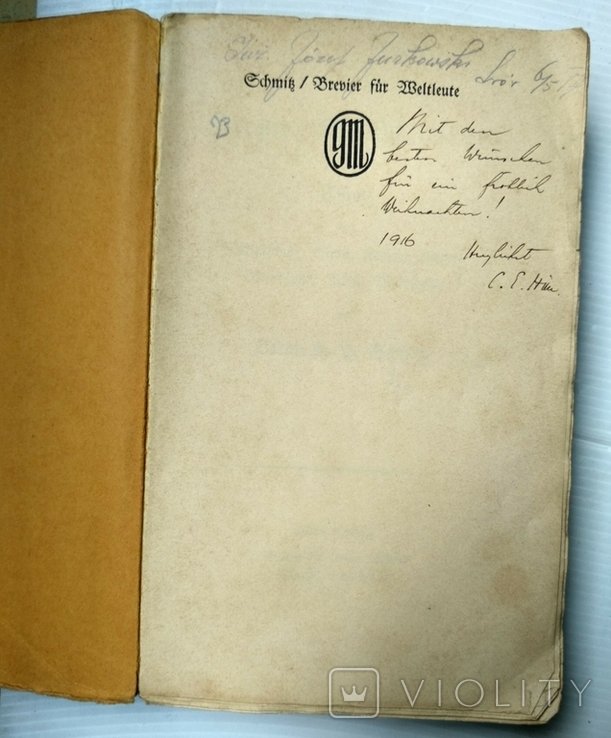 Józef Jurkowski
Schmitz / Brevier für Weltleute
gm
Mit den
besten Wünschen
für ein frohlich
Weihnachten!
1916 Herzlichst
C. E.
VIOLITY